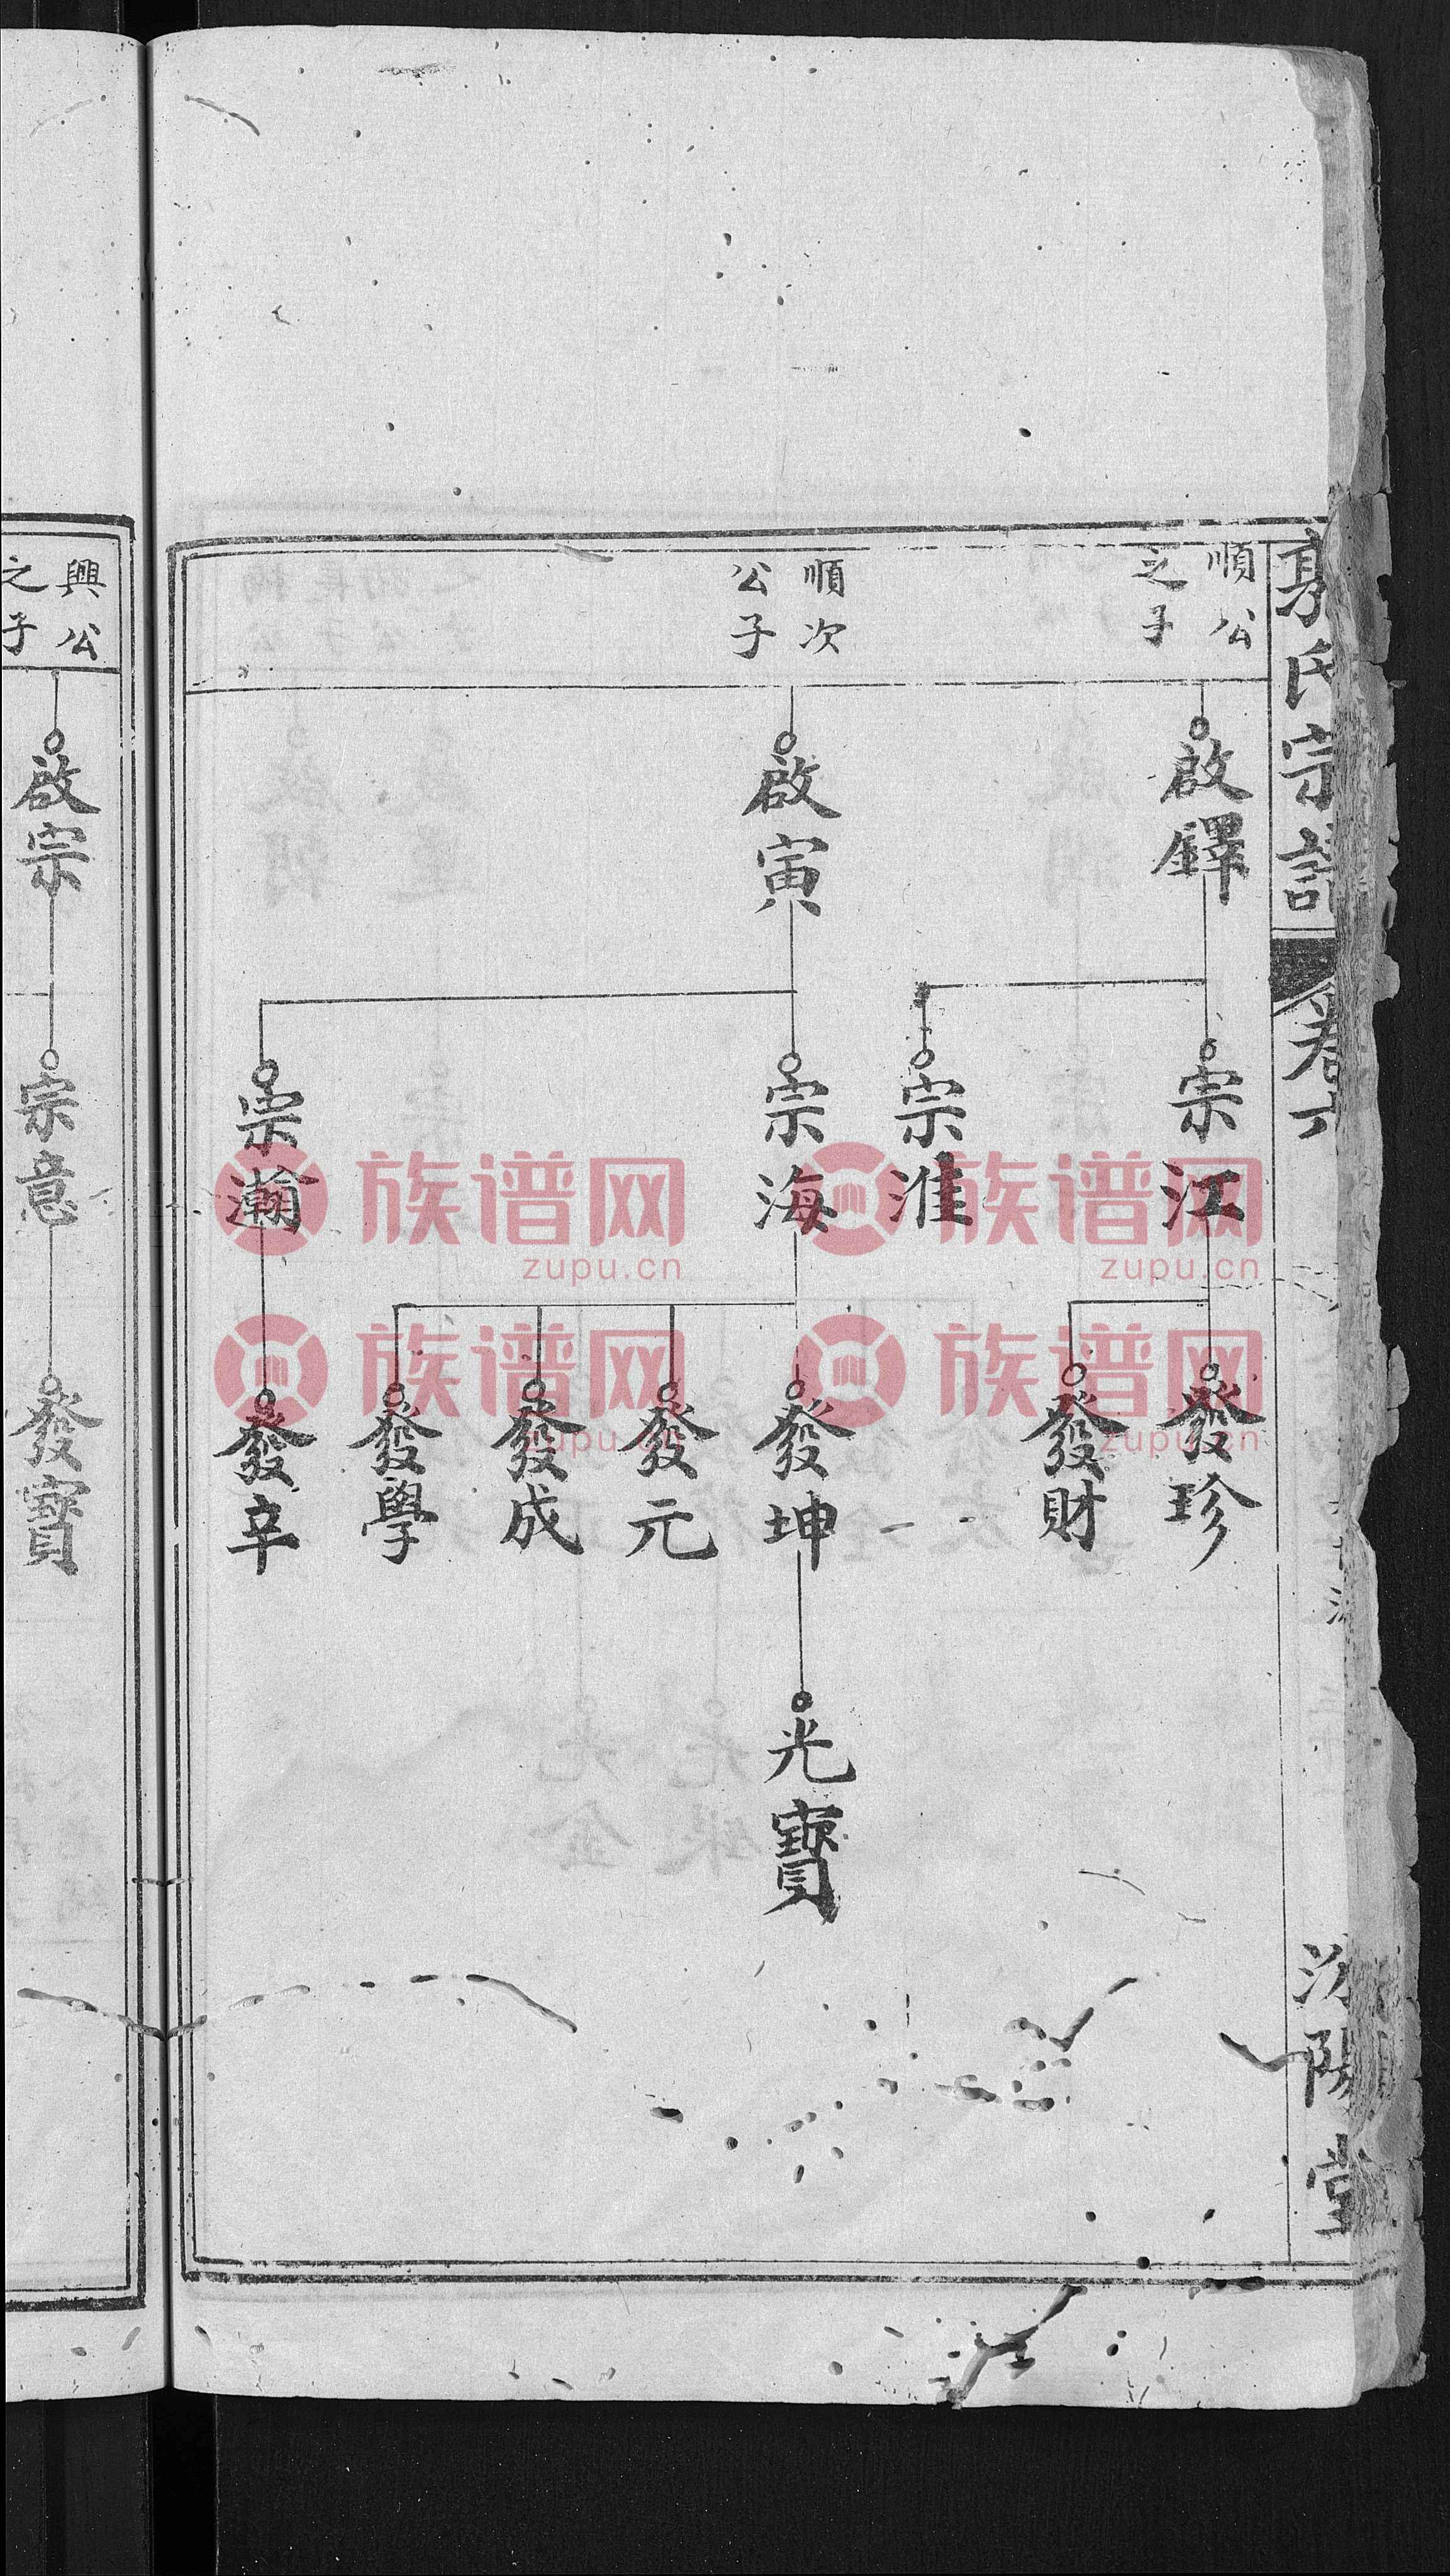 氏宗譜
卷六
汾陽堂
順公
之子
啟鐸
宗江
宗淮
發珍
發財
順次
公子
啟寅
宗海
宗瀚
發坤
發元
發成
發學
發辛
光寶
興公
之子
啟宗
宗意
發寶
族谱网
zupu.cn
族谱网
zupu.cn
族谱网
zupu.cn
族谱网
zupu.cn